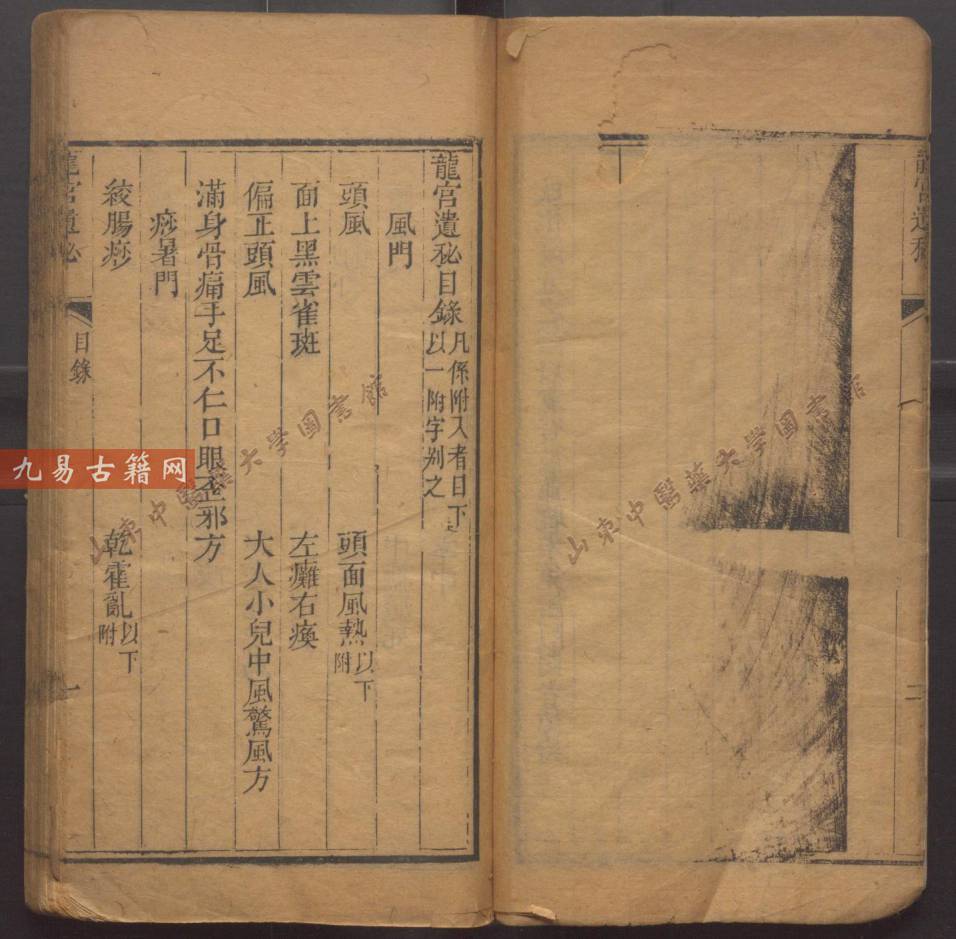 龍宮遺秘目錄凡係附入者目下以一附字别之
風門
頭風 頭面風熱以下附
面上黑雲雀斑 左癱右瘓
偏正頭風 大人小兒中風驚風方
滿身骨痛手足不仁口眼歪邪方
痧暑門
絞腸痧 乾霍亂以下附
龍宮遺秘 目錄 一
龍宮遺秘
二
九易古籍网
山東中醫藥大學圖書館
山東中醫藥大學圖書館